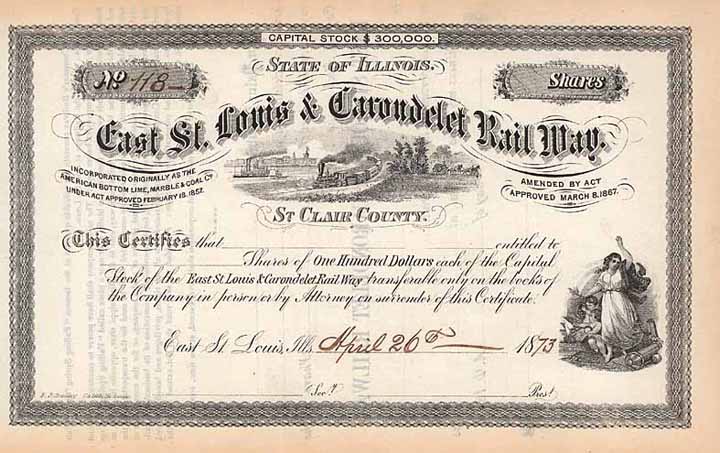 CAPITAL STOCK $ 300,000.
STATE OF ILLINOIS.
No 118
Shares
East St. Louis & Carondelet Rail Way.
INCORPORATED ORIGINALLY AS THE
AMERICAN BOTTOM LIME, MARBLE & COAL Co
UNDER ACT APPROVED FEBRUARY 18. 1857.
AMENDED BY ACT
APPROVED MARCH 8.1867.
ST CLAIR COUNTY.
This Certifies that entitled to
Shares of One Hundred Dollars each of the Capital
Stock of the East St. Louis & Carondelet Rail Way transferable only on the books of
the Company in person or by Attorney on surrender of this Certificate.
East St. Louis, Ills. April 26th 1873
Secy. Prest.